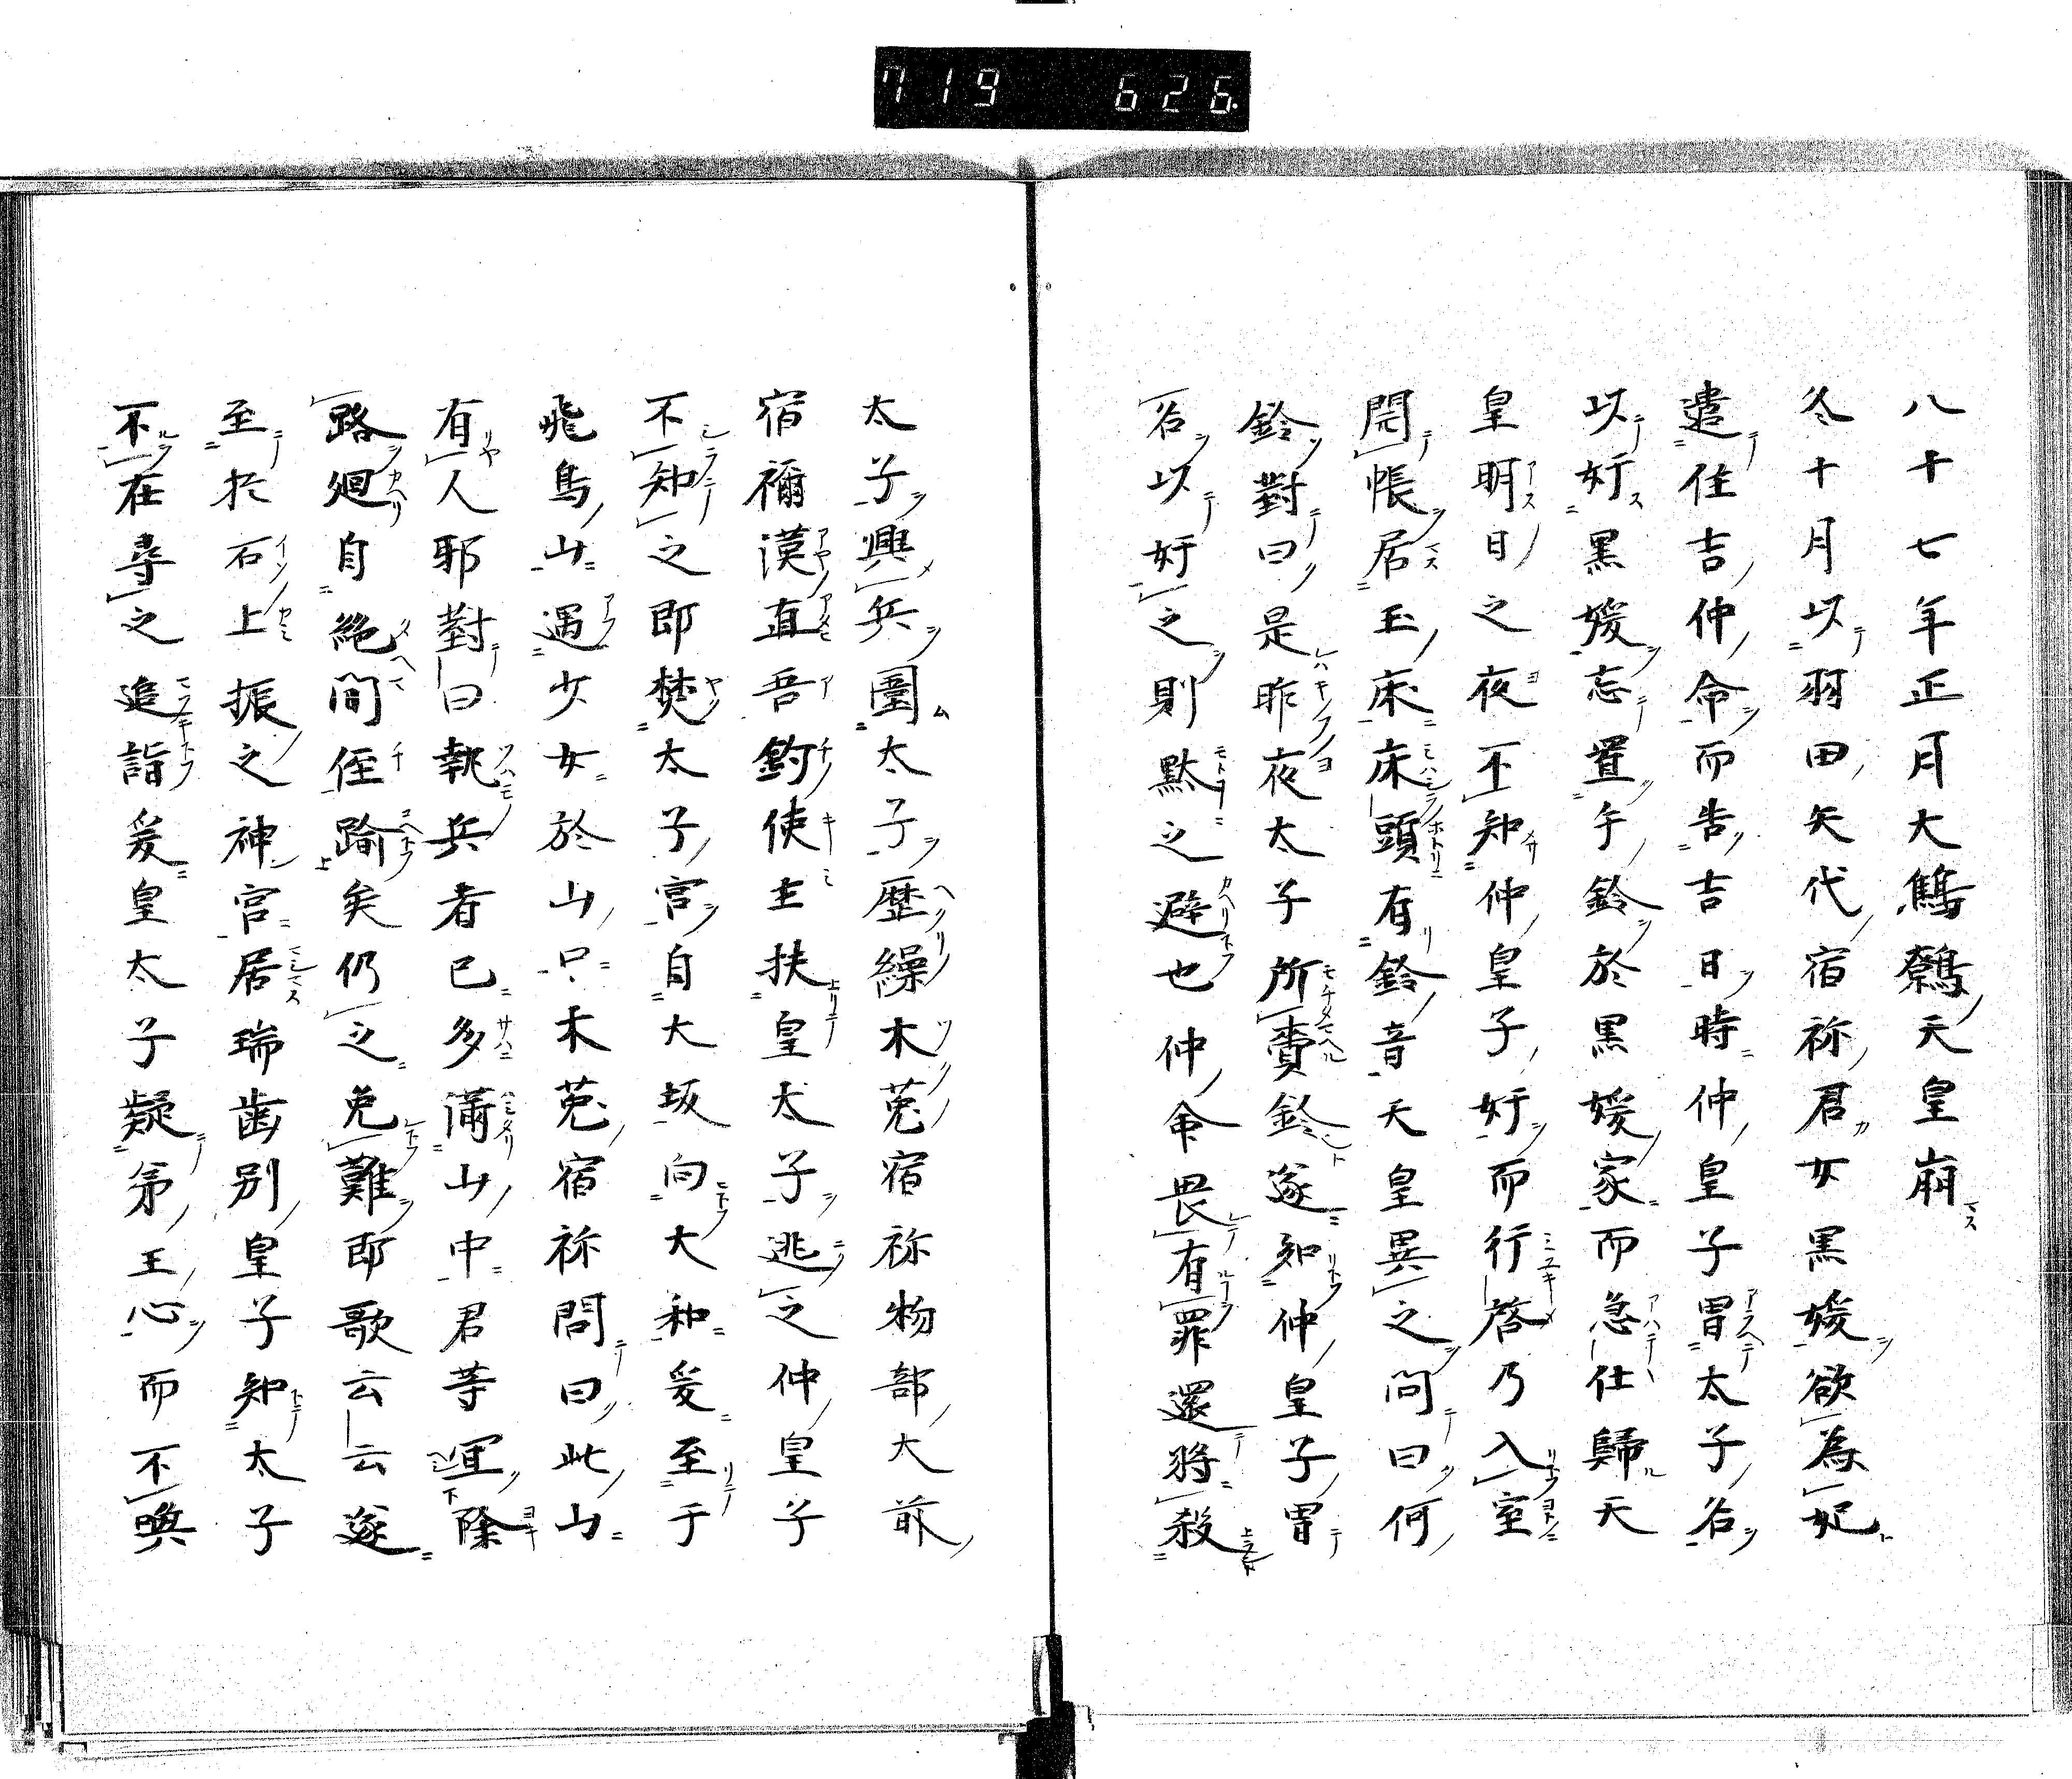 719 626.
八十七年正月大鷦鷯天皇崩
冬十月以羽田矢代宿祢君女黒媛欲為妃
遣住吉仲命而告吉日時仲皇子冒太子名
以奸黒媛忘置手鈴於黒媛家而急仕歸天
皇明日之夜不知仲皇子奸而行啓乃入室
開帳居玉床床頭有鈴音天皇異之問曰何
鈴對曰是昨夜太子所賷鈴遂知仲皇子冒
名以奸之則黙之避也仲命畏有罪還將殺
太子興兵圍太子歴繰木菟宿祢物部大前
宿禰漢直吾釣使主扶皇太子逃之仲皇子
不知之即焚太子宮自大坂向大和爰至于
飛鳥山遇少女於山口木菟宿祢問曰此山
有人耶對曰執兵者已多滿山中君等冝除
路廻自絶間侄踰矣仍之免難即歌云云遂
至於石上振之神宮居瑞歯別皇子知太子
不在尋之追詣爰皇太子疑弟王心而不喚